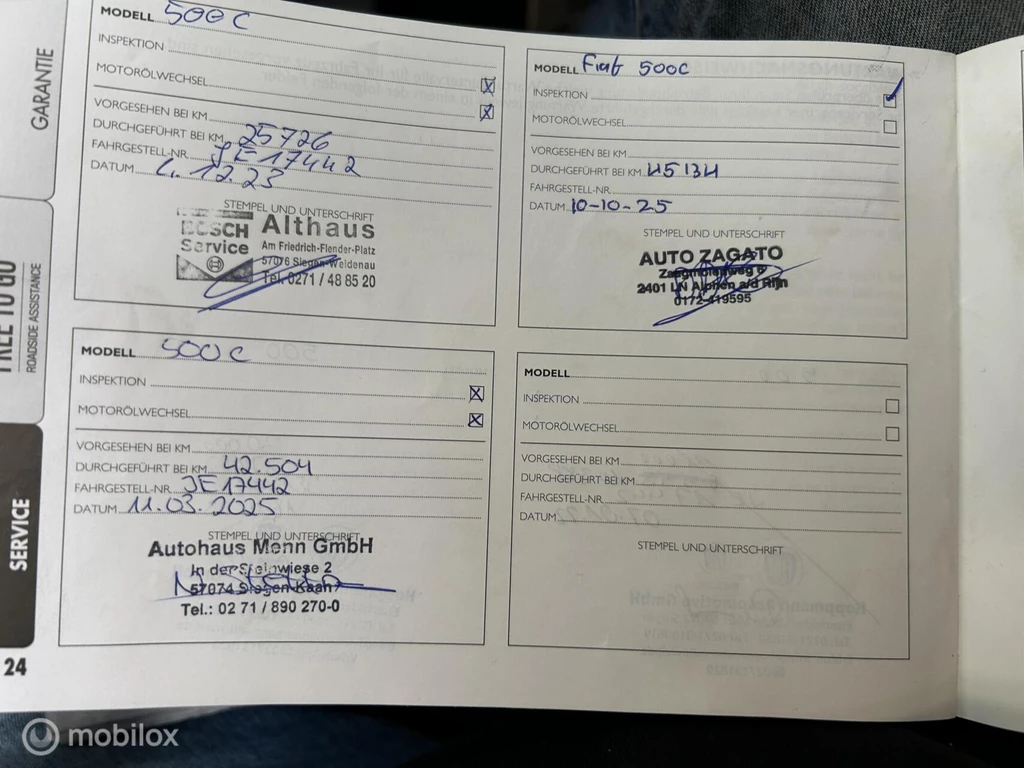 GARANTIE
FREE TO GO
ROADSIDE ASSISTANCE
SERVICE
24
MODELL 500C
INSPEKTION
MOTORÖLWECHSEL
VORGESEHEN BEI KM
DURCHGEFÜHRT BEI KM 25726
FAHRGESTELL-NR. JE17442
DATUM 4.12.23
STEMPEL UND UNTERSCHRIFT
BOSCH Althaus
Service Am Friedrich-Flender-Platz
57076 Siegen-Weidenau
Tel. 0271 / 48 85 20
MODELL Fiat 500C
INSPEKTION
MOTORÖLWECHSEL
VORGESEHEN BEI KM
DURCHGEFÜHRT BEI KM 45134
FAHRGESTELL-NR.
DATUM 10-10-25
STEMPEL UND UNTERSCHRIFT
AUTO ZAGATO
2401 LN Alphen a/d Rijn
0172-419595
MODELL 500C
INSPEKTION
MOTORÖLWECHSEL
VORGESEHEN BEI KM
DURCHGEFÜHRT BEI KM 42.504
FAHRGESTELL-NR. JE17442
DATUM 11.03.2025
STEMPEL UND UNTERSCHRIFT
Autohaus Menn GmbH
In der Steinwiese 2
57074 Siegen-Kaan
Tel.: 02 71 / 890 270-0
MODELL
INSPEKTION
MOTORÖLWECHSEL
VORGESEHEN BEI KM
DURCHGEFÜHRT BEI KM
FAHRGESTELL-NR.
DATUM
STEMPEL UND UNTERSCHRIFT
mobilox